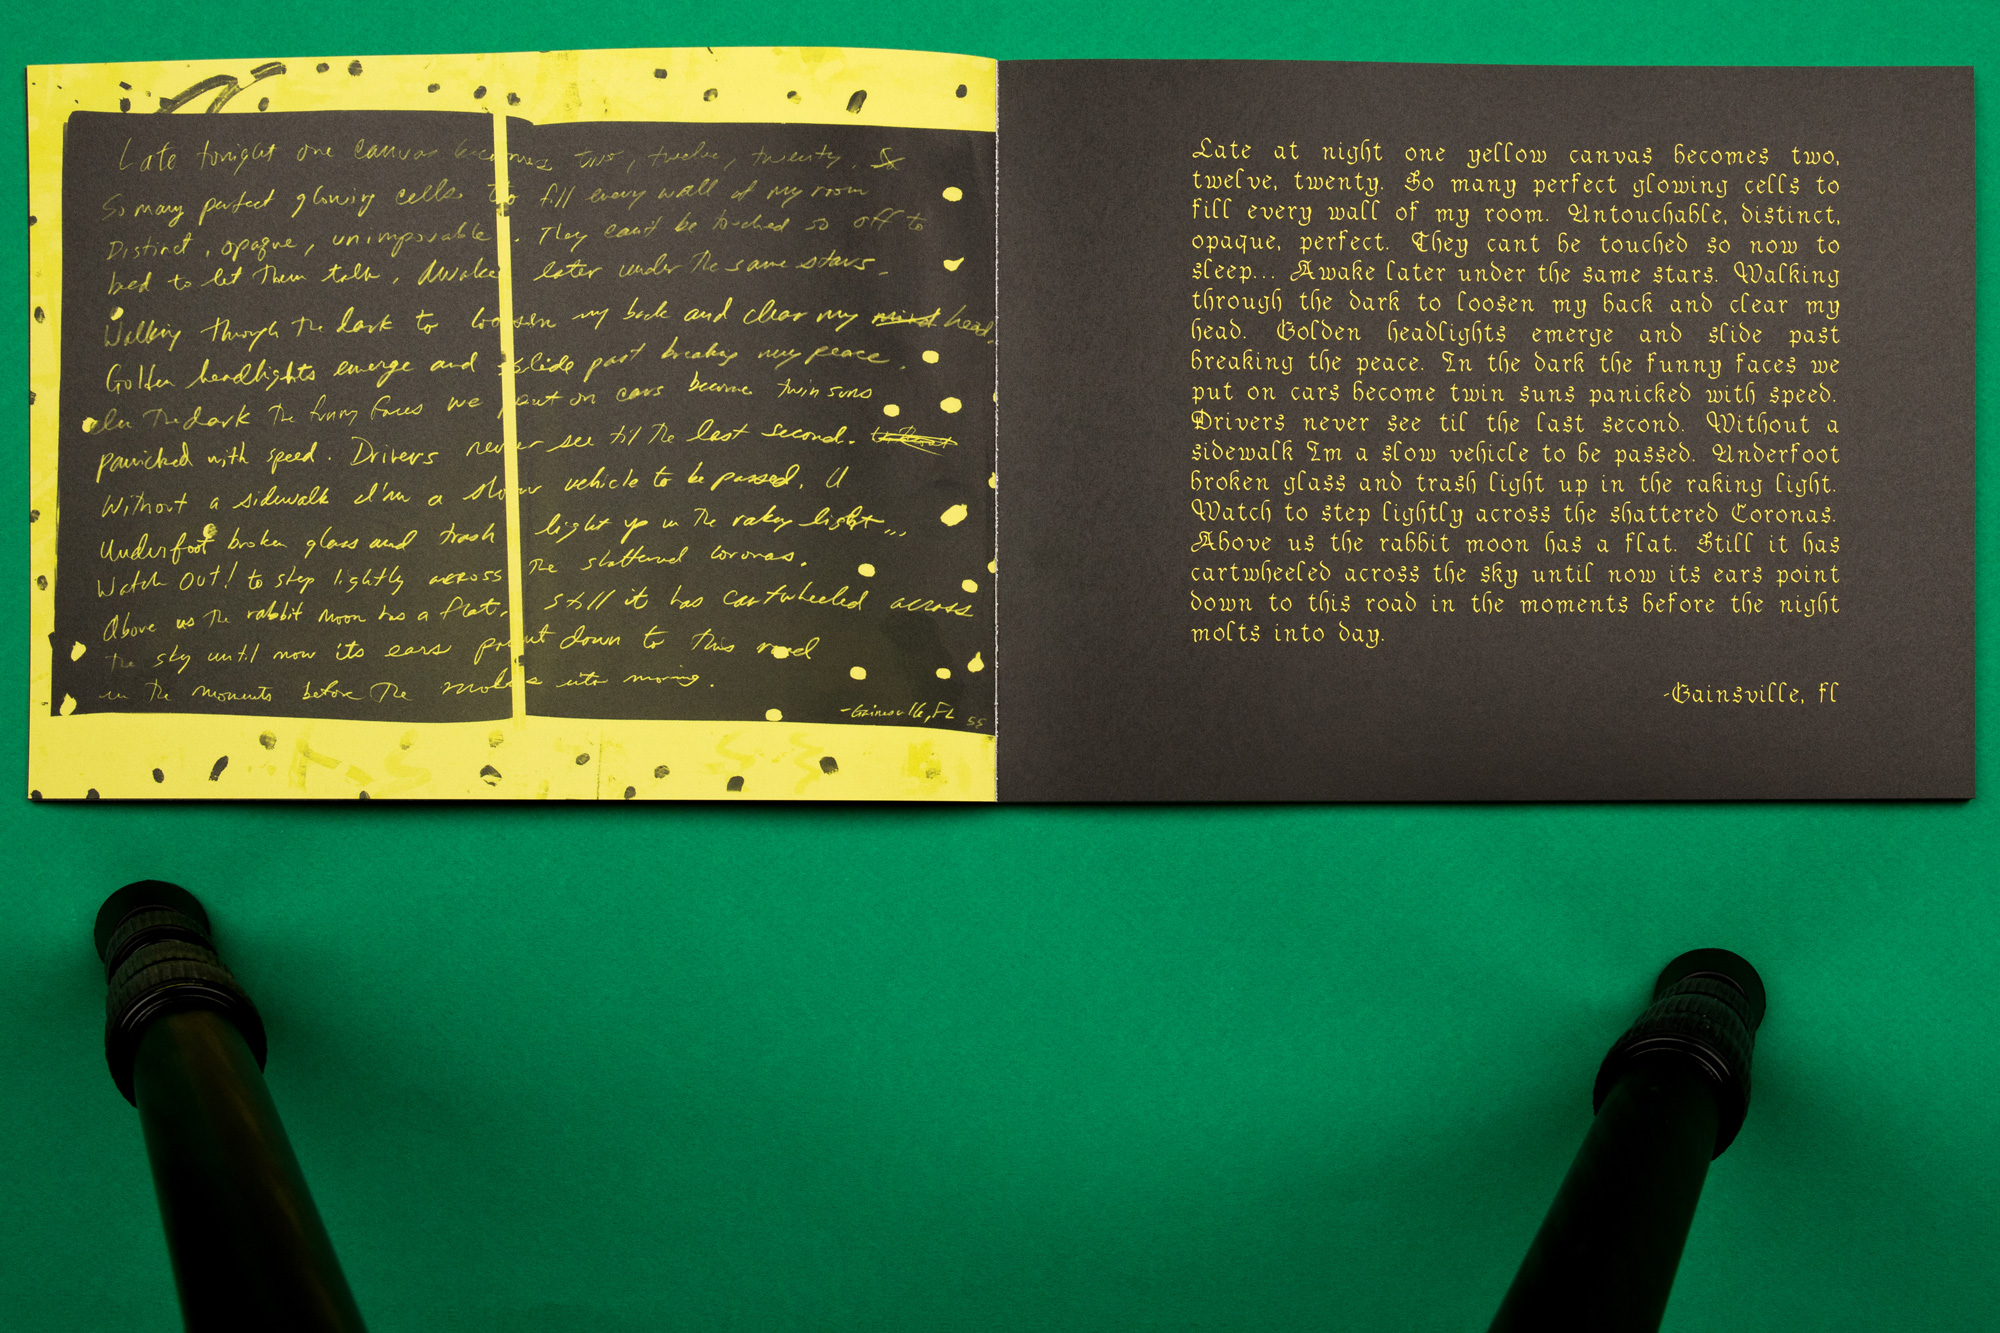 Late tonight one canvas becomes two, twelve, twenty.
So many perfect glowing cells to fill every wall of my room
Distinct, opaque, unimposable. They can't be touched so off to
bed to let them talk, Awake later under the same stars.
Walking through the dark to loosen my back and clear my mind head.
Golden headlights emerge and slide past breaking my peace.
In the dark the funny faces we put on cars become twin suns
panicked with speed. Drivers never see til the last second.
Without a sidewalk I'm a slow vehicle to be passed. U
Underfoot broken glass and trash light up in the raking light...
Watch Out! to step lightly across the shattered coronas.
Above us the rabbit moon has a flat. Still it has cartwheeled across
the sky until now its ears point down to this road
in the moments before the molts into morning.
-Gainesville, FL 55
Late at night one yellow canvas becomes two,
twelve, twenty. So many perfect glowing cells to
fill every wall of my room. Untouchable, distinct,
opaque, perfect. They cant be touched so now to
sleep... Awake later under the same stars. Walking
through the dark to loosen my back and clear my
head. Golden headlights emerge and slide past
breaking the peace. In the dark the funny faces we
put on cars become twin suns panicked with speed.
Drivers never see til the last second. Without a
sidewalk Im a slow vehicle to be passed. Underfoot
broken glass and trash light up in the raking light.
Watch to step lightly across the shattered Coronas.
Above us the rabbit moon has a flat. Still it has
cartwheeled across the sky until now its ears point
down to this road in the moments before the night
molts into day.
-Gainsville, Fl